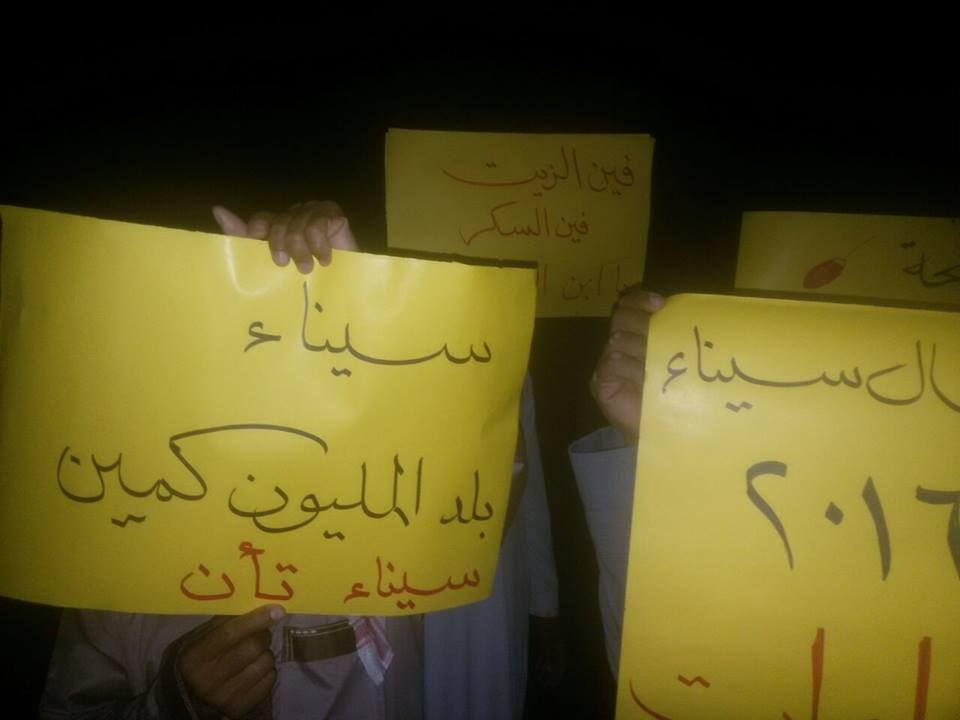 سيناء
بلد المليون كمين
سيناء تأن
فين الزيت
فين السكر
يا ابن
سيناء
٢٠١٦